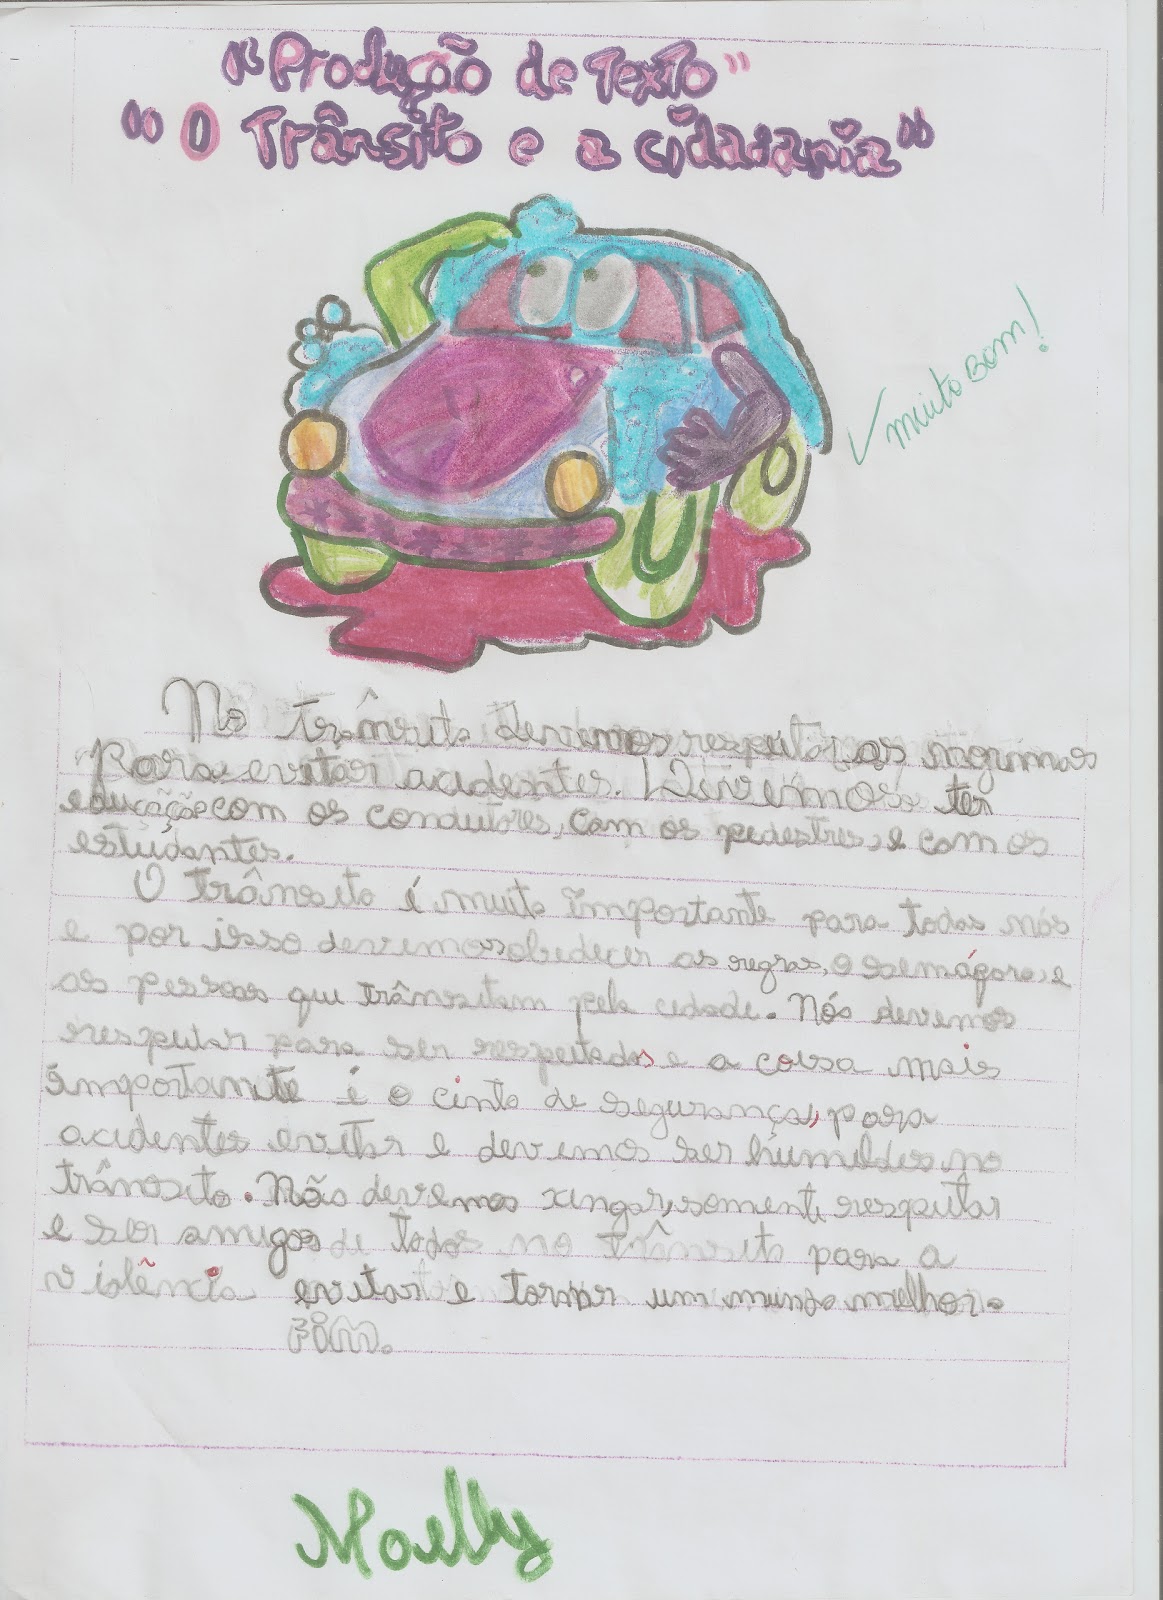 "Produção de Texto"
"O Trânsito e a cidadania"
muito Bom!
No trânsito devemos respeitar as
Para evitar acidentes. Devemos ter
educação com os condutores, com os pedestres, e com os
estudantes.
O trânsito é muito importante para todos nós
e por isso devemos obedecer as regras, o semáforo, e
as pessoas que trânsitam pela cidade. Nós devemos
respeitar para ser respeitados e a coisa mais
importante é o cinto de segurança, para
acidentes evitar e devemos ser húmildes no
trânsito. Não devemos xingar, somente respeitar
e ser amigos de todos no trânsito para a
violência evitar e tornar um mundo melhor.
Fim.
Maelly